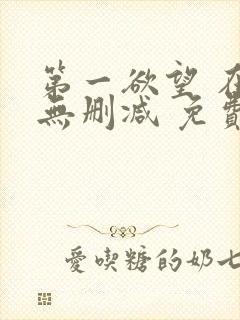 第一欲望 在
無刪減 免費
愛喫糖的奶七